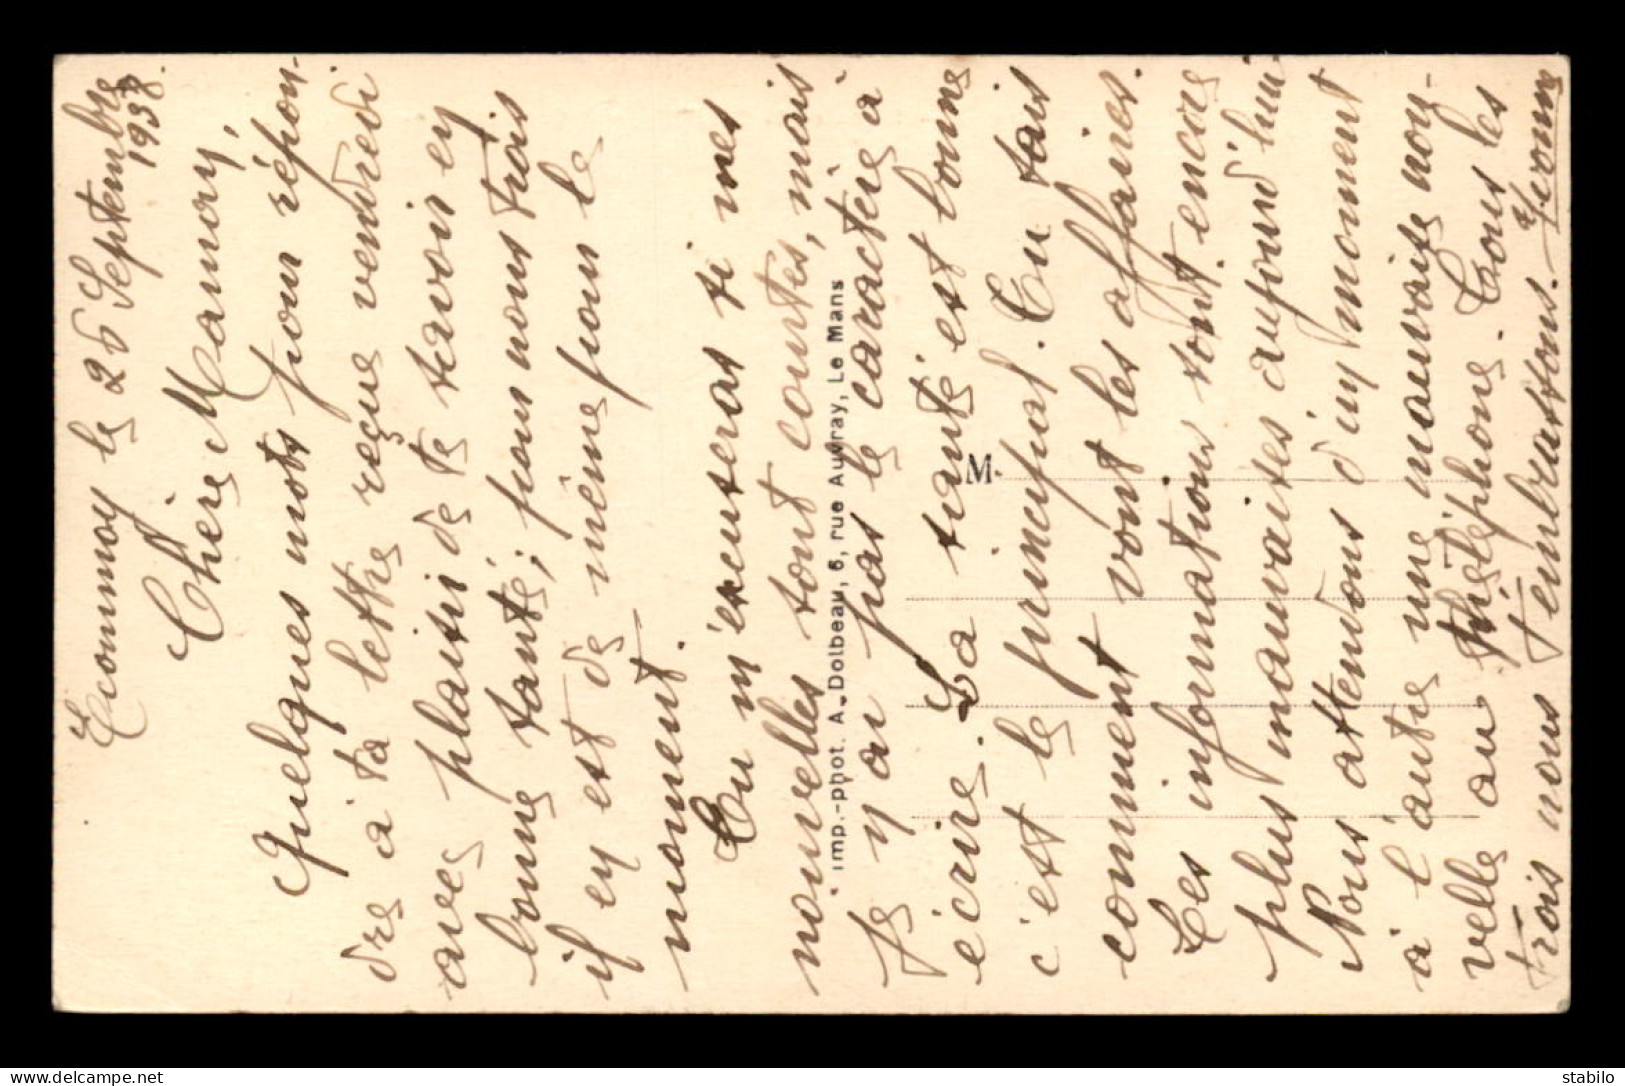 Ecommoy le 26 Septembre
1938.
Chère Mamory,
Quelques mots pour répon-
dre à ta lettre reçue vendredi
avec plaisir de te savoir en
bonne santé; pour nous trois
il en est de même pour le
moment.
Tu m'excuseras si mes
nouvelles sont courtes, mais
je n'ai pas le caractère à
écrire. La santé est bonne
c'est le principal. Tu sais
comment vont les affaires.
Les informations sont encore
plus mauvaises aujourd'hui.
Nous attendons d'un moment
à l'autre une mauvaise nou-
velle au théléphone. Tous les
trois nous t'embrassons.
imp.-phot. A. Dolbeau, 6, rue Auvray, Le Mans
M.
stabilo